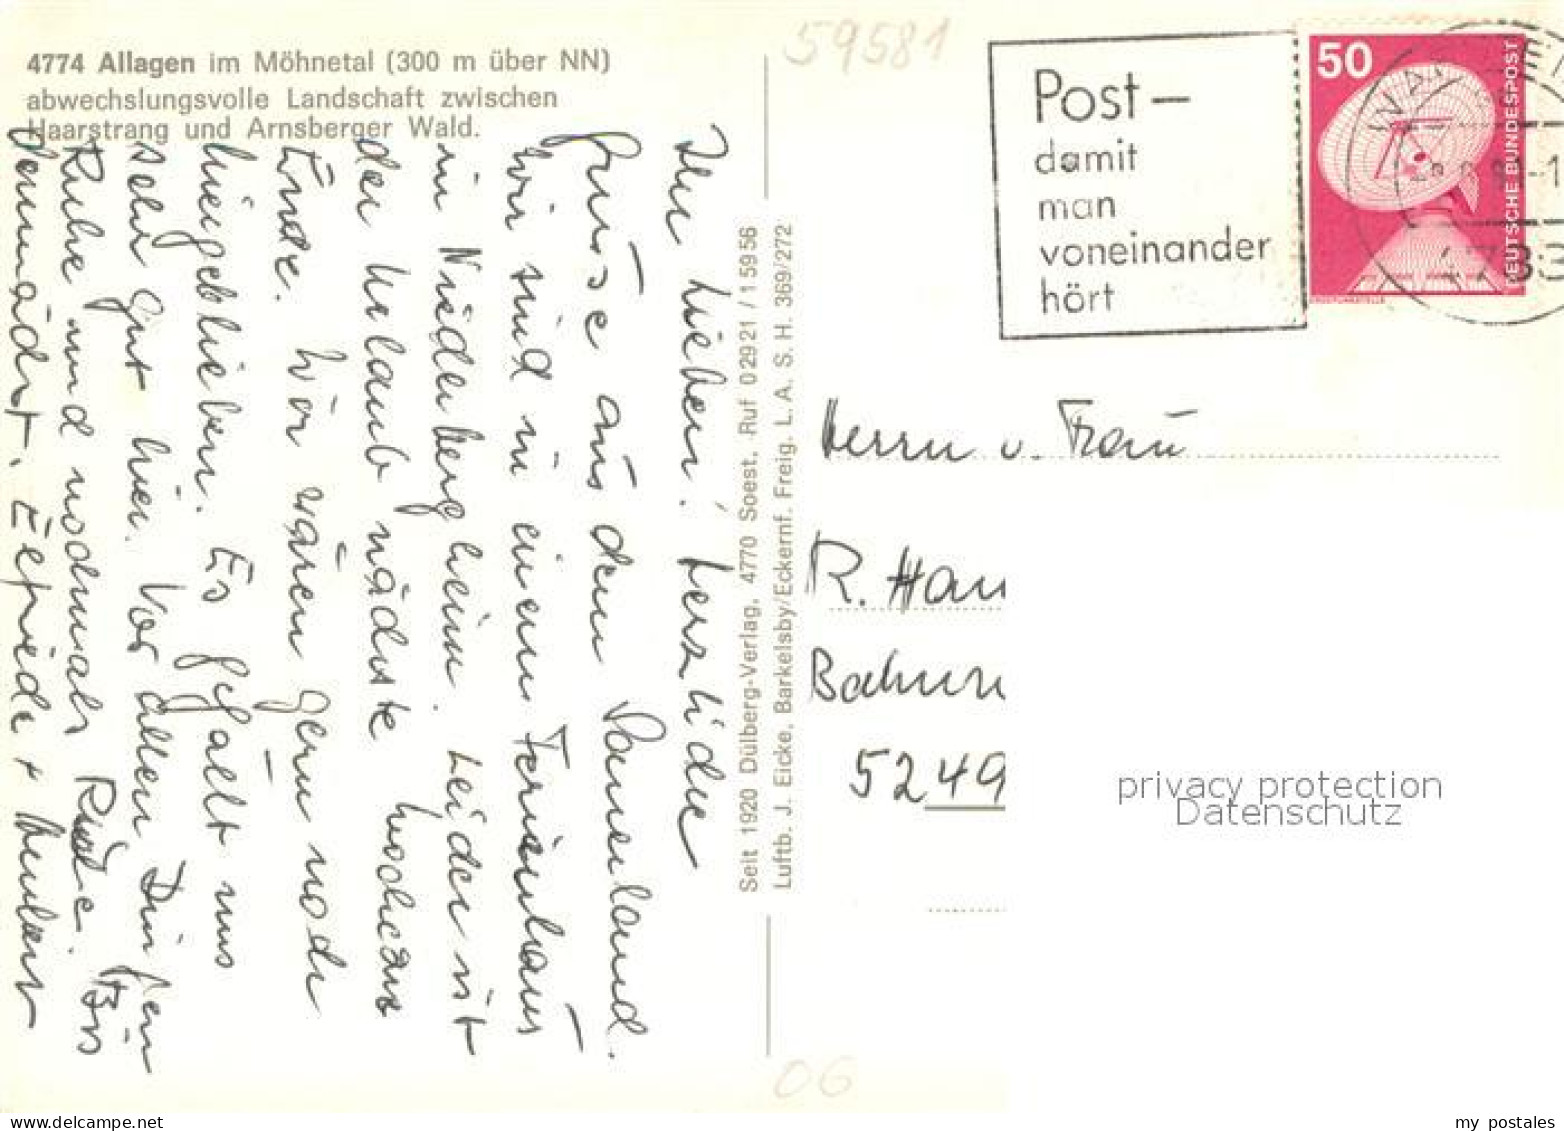 4774 Allagen im Möhnetal (300 m über NN)
abwechslungsvolle Landschaft zwischen
Haarstrang und Arnsberger Wald.
Ihr Lieben! Herzliche
Grüsse aus dem Sauerland.
Wir sind in einem Ferienhaus
in Niederbergheim. Leider ist
der Urlaub nächste Woche zu
Ende. Wir wären gern noch
hiergeblieben. Es gefällt uns
sehr gut hier. Vor allem
Ruhe und nochmals Ruhe. Bis
demnächst. Elfriede + Hubert
Seit 1920 Dülberg-Verlag, 4770 Soest. Ruf 02921/15956
Luftb. J. Eicke, Barkelsby/Eckernf. Freig. L.A. S. H. 369/272
59581
Post –
damit
man
voneinander
hört
50
DEUTSCHE BUNDESPOST
Herrn u. Frau
R. Han
Bahnn
5249
privacy protection
Datenschutz
06
my postales